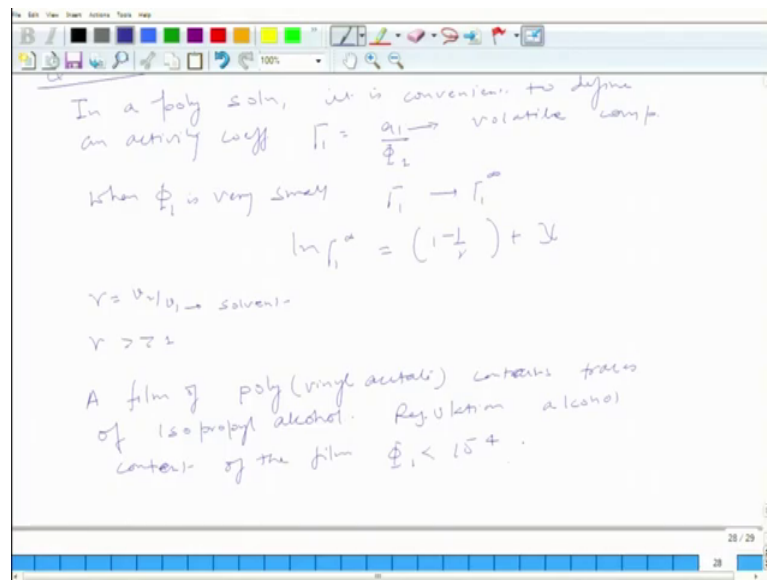 File Edit View Insert Actions Tools Help
B I
100%
In a poly soln, it is convenient to define
an activity coeff Γ₁ = a₁/Φ₁ → volatile comp.
When Φ₁ is very small Γ₁ → Γ₁^∞
ln Γ₁^∞ = (1 - 1/r) + χ
r = v₂/v₁ → solvent
r >> 1
A film of poly(vinyl acetate) contains traces
of isopropyl alcohol. Regulation alcohol
content of the film Φ₁ < 10⁻⁴.
28 / 29
28